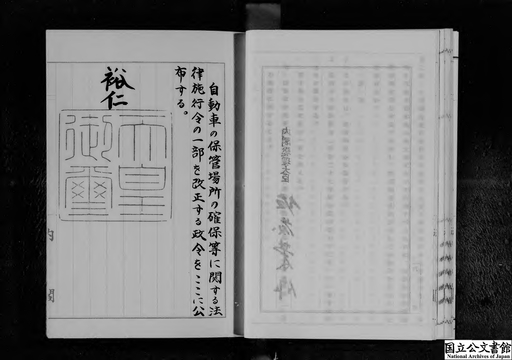 自動車の保管場所の確保等に関する法
律施行令の一部を改正する政令をここに公
布する。
裕仁
天皇
御璽
内閣
内閣総理大臣
国立公文書館
National Archives of Japan